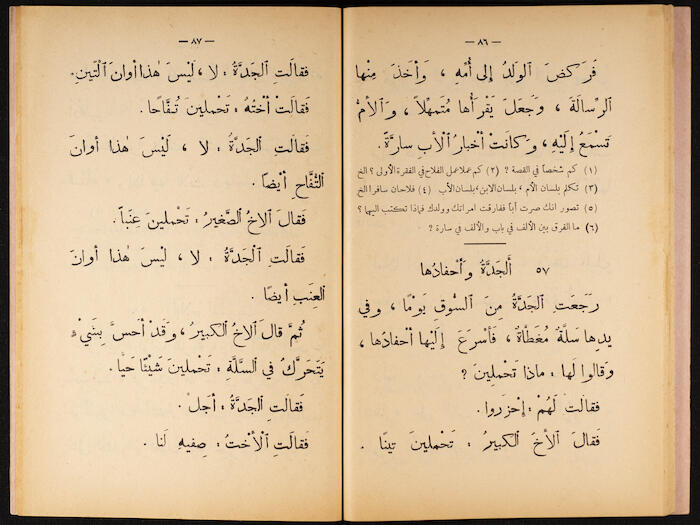 — ٨٦ —
فَرَكَضَ ٱلولَدُ إلى أُمِّهِ ، وَأخذَ مِنْها
ٱلرِّسالَةَ ، وَجَعَلَ يَقْرَأُها مُتَمَهِّلاً ، وَٱلأمُّ
تَسْمَعُ إلَيْهِ ، وَكانَتْ أخْبارُ ٱلأبِ سارَّةً .
(١) كم شخصاً في القصة ? (٢) كم عملا عمل الفلاح في الفقرة الاولى ? الخ
(٣) تكلم بلسان الأم ، بلسان الابن ، بلسان الأب (٤) فلاحان سافرا الخ
(٥) تصور انك صرت أباً ففارقت امرأتك وولدك فماذا تكتب اليهما ?
(٦) ما الفرق بين الألف في باب والألف في سارة ?
٥٧ ألْجَدَّةُ وَأحْفادُها
رَجَعَتِ ٱلجَدَّةُ مِنَ ٱلسُّوقِ يَوْمًا ، وفي
يدِها سَلَّةٌ مُغَطَّاةٌ ، فَأسْرَعَ إلَيْها أحْفادُها ،
وَقالوا لَها : ماذا تَحْمِلينَ ?
فقالَتْ لَهُمْ : إحْزِروا .
فَقالَ ٱلأخُ ٱلكَبيرُ : تَحْمِلينَ تينًا .
— ٨٧ —
فقالَتِ ٱلجَدَّةُ : لا ، لَيْسَ هٰذا أوانَ ٱلتّينِ .
فَقالَتْ أخْتُهُ : تَحْمِلينَ تُفَّاحًا .
فَقالَتِ ٱلجَدَّةُ : لا ، لَيْسَ هٰذا أوانَ
ٱلتُّفَّاحِ أيْضاً .
فَقالَ ٱلاخُ ٱلصَّغيرُ : تَحْمِلينَ عِنَباً .
فَقالَتِ ٱلجَدَّةُ : لا ، لَيْسَ هٰذا أوانَ
ٱلعِنَبِ أيضًا .
ثُمَّ قالَ ٱلاخُ ٱلكبيرُ ، وَقَدْ أحَسَّ بِشَيْءٍ
يَتَحَرَّكُ في ٱلسَّلَّةِ : تَحْمِلينَ شَيْئًا حَيًّا .
فَقالَتِ ٱلجَدَّةُ : أجَلْ .
فَقالَتِ ٱلأُخْتُ : صِفيهِ لَنا .